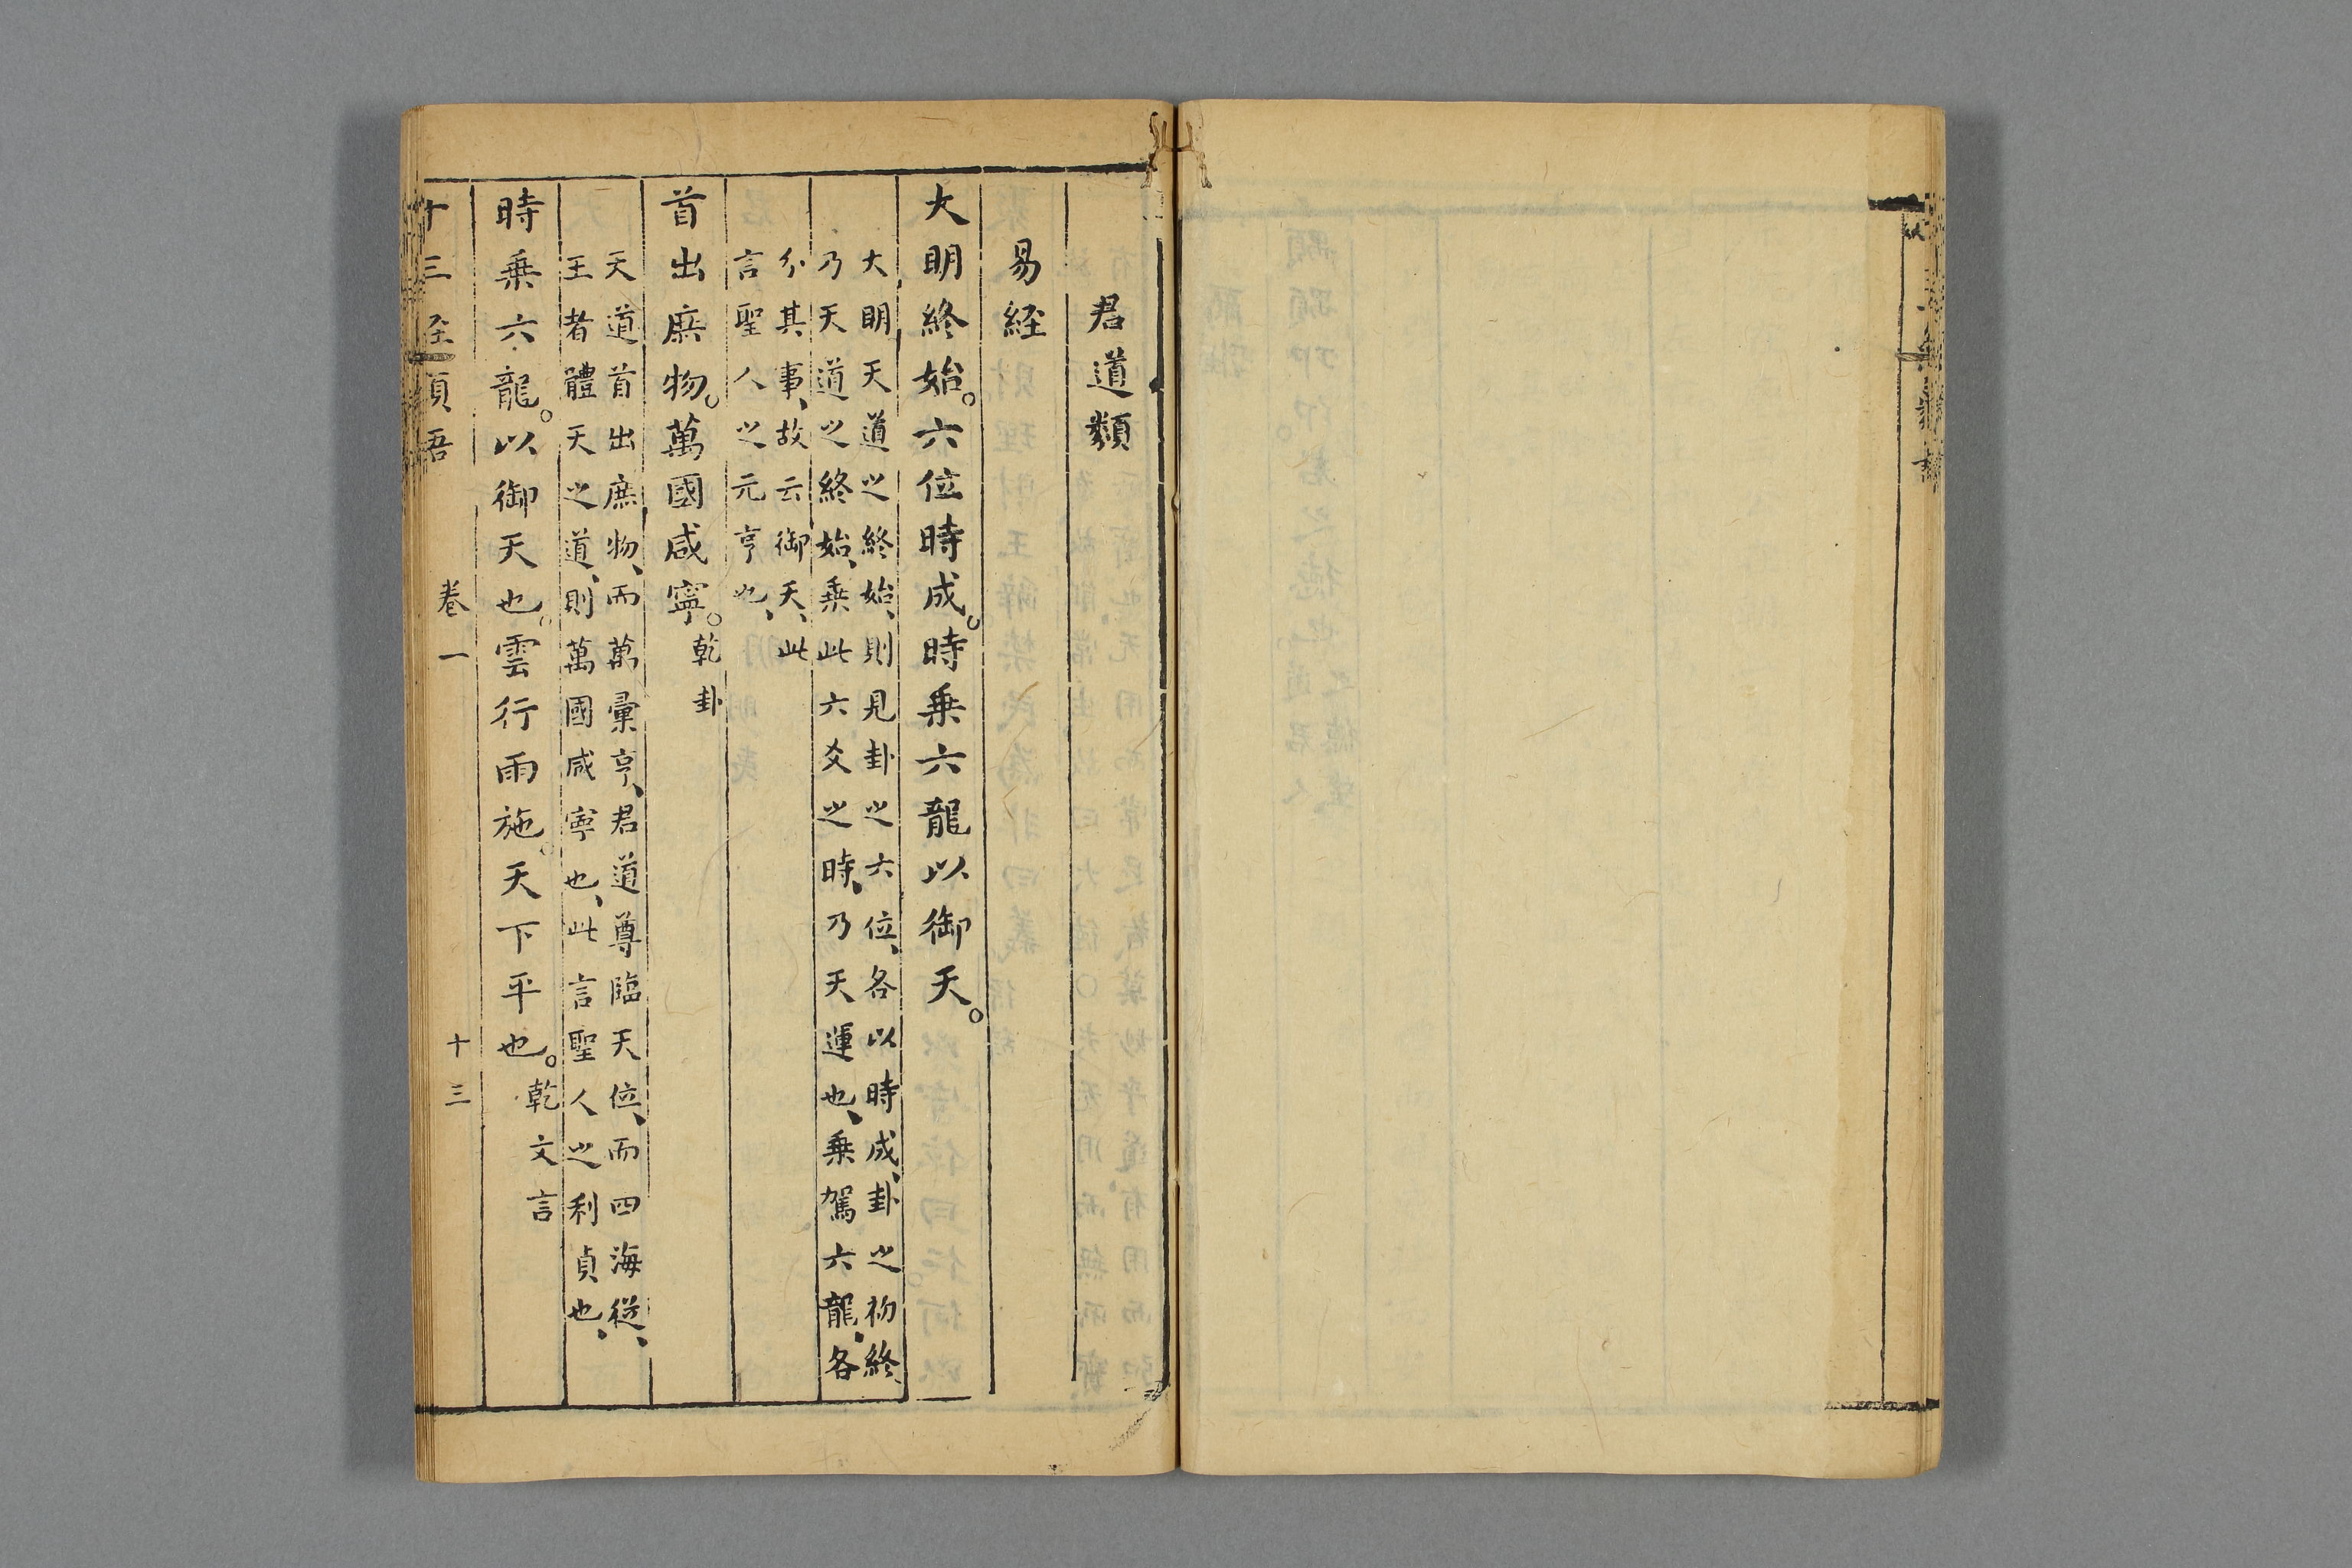 君道類
易経
大明終始。六位時成。時乗六龍以御天。
大明天道之終始、則見卦之六位、各以時成、卦之初終、
乃天道之終始、乗此六爻之時、乃天運也、乗駕六龍、各
分其事、故云御天、此
言聖人之元亨也、
首出庶物。萬國咸寧。乾卦
天道首出庶物、而萬彙亨、君道尊臨天位、而四海従、
王者體天之道、則萬國咸寧也、此言聖人之利貞也、
時乗六龍。以御天也。雲行雨施。天下平也。乾文言
十三経類語
卷一
十三